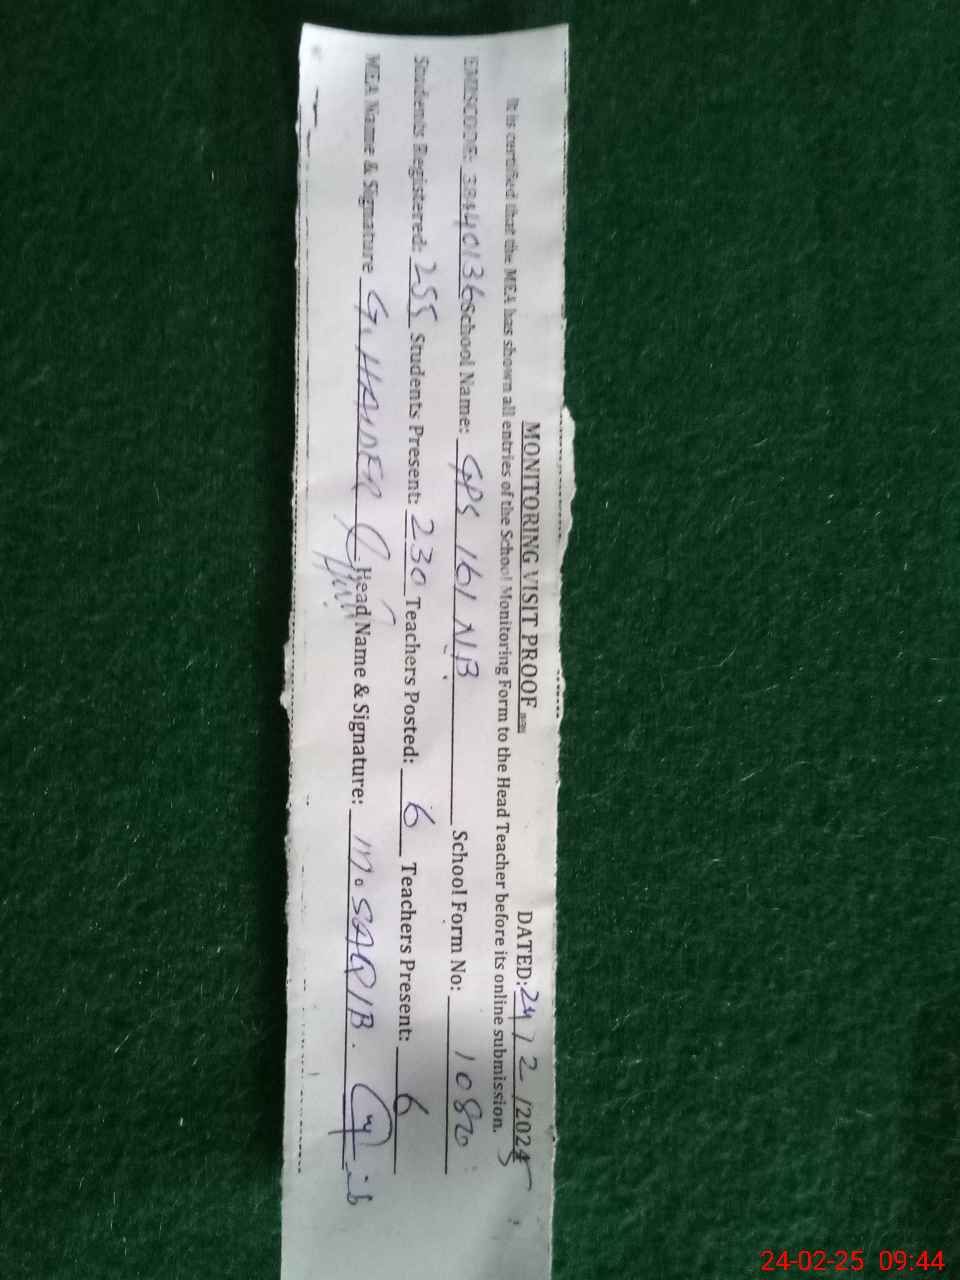 MONITORING VISIT PROOF DATED: 24/2/2025
It is certified that the MEA has shown all entries of the School Monitoring Form to the Head Teacher before its online submission.
EMISCODE: 38440136 School Name: GPS 161 NB School Form No: 1080
Students Registered: 255 Students Present: 230 Teachers Posted: 6 Teachers Present: 6
MEA Name & Signature G. HAIDER Head Name & Signature: M. SAQIB.
24-02-25 09:44